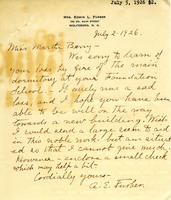 July 5, 1926 $2.
MRS. EDWIN L. FURBER
MAIN STREET
WOLFEBORO, N. H.
July 2 - 1926.
Miss Martha Berry -
Was sorry to learn of
your loss by fire of the main
dormitory at your Foundation
School. It surely was a sad
loss, and I hope you have been
able to be well on the way
towards a new building. Wish
I could send a large sum to aid
in this noble work, but am situat-
ed so that I cannot give much.
However - enclose a small check
which may help a bit.
Cordially yours -
A. E. Furber.